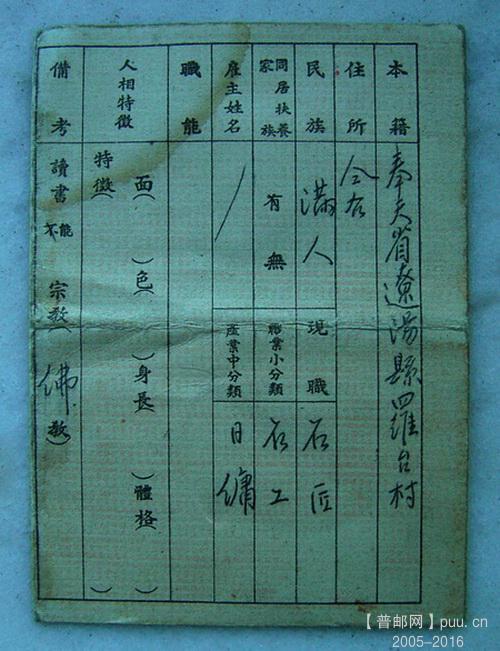 本籍 奉天省遼陽縣四維台村
住所 仝右
民族 滿人 現職 石匠
同居扶養家族 有 無 職業小分類 石工
雇主姓名 / 產業中分類 日傭
職能
人相特徵 面( )色( )身長( )體格( )
特徵( )
備考 讀書 能 不能 宗教(佛教)
【普邮网】puu.cn
2005-2016